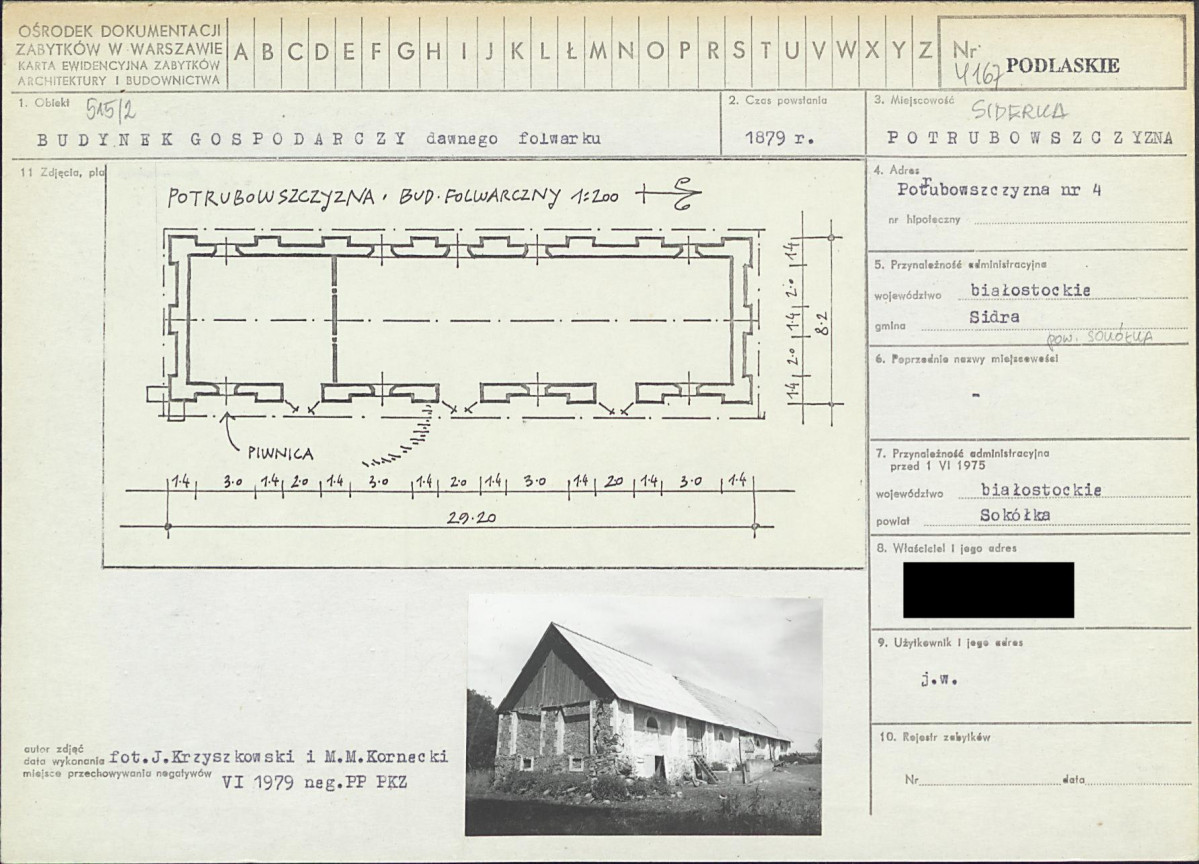 OŚRODEK DOKUMENTACJI
ZABYTKÓW W WARSZAWIE
KARTA EWIDENCYJNA ZABYTKÓW
ARCHITEKTURY I BUDOWNICTWA
A B C D E F G H I J K L Ł M N O P R S T U V W X Y Z
Nr 4167 PODLASKIE
1. Obiekt 515/2
BUDYNEK GOSPODARCZY dawnego folwarku
2. Czas powstania
1879 r.
3. Miejscowość SIDERKA
POTRUBOWSZCZYZNA
11 Zdjęcia, pla
POTRUBOWSZCZYZNA, BUD. FOLWARCZNY 1:200
1.4 2.0 1.4 2.0 1.4
8.2
PIWNICA
1.4 3.0 1.4 2.0 1.4 3.0 1.4 2.0 1.4 3.0 1.4 20 1.4 3.0 1.4
29.20
4. Adres
Potrubowszczyzna nr 4
nr hipoteczny
5. Przynależność administracyjna
województwo białostockie
gmina Sidra
pow. SOKÓŁKA
6. Poprzednie nazwy miejscowości
-
7. Przynależność administracyjna
przed 1 VI 1975
województwo białostockie
powiat Sokółka
8. Właściciel i jego adres
9. Użytkownik i jego adres
j.w.
10. Rejestr zabytków
Nr data
autor zdjęć
data wykonania fot.J.Krzyszkowski i M.M.Kornecki
miejsce przechowywania negatywów VI 1979 neg.PP PKZ